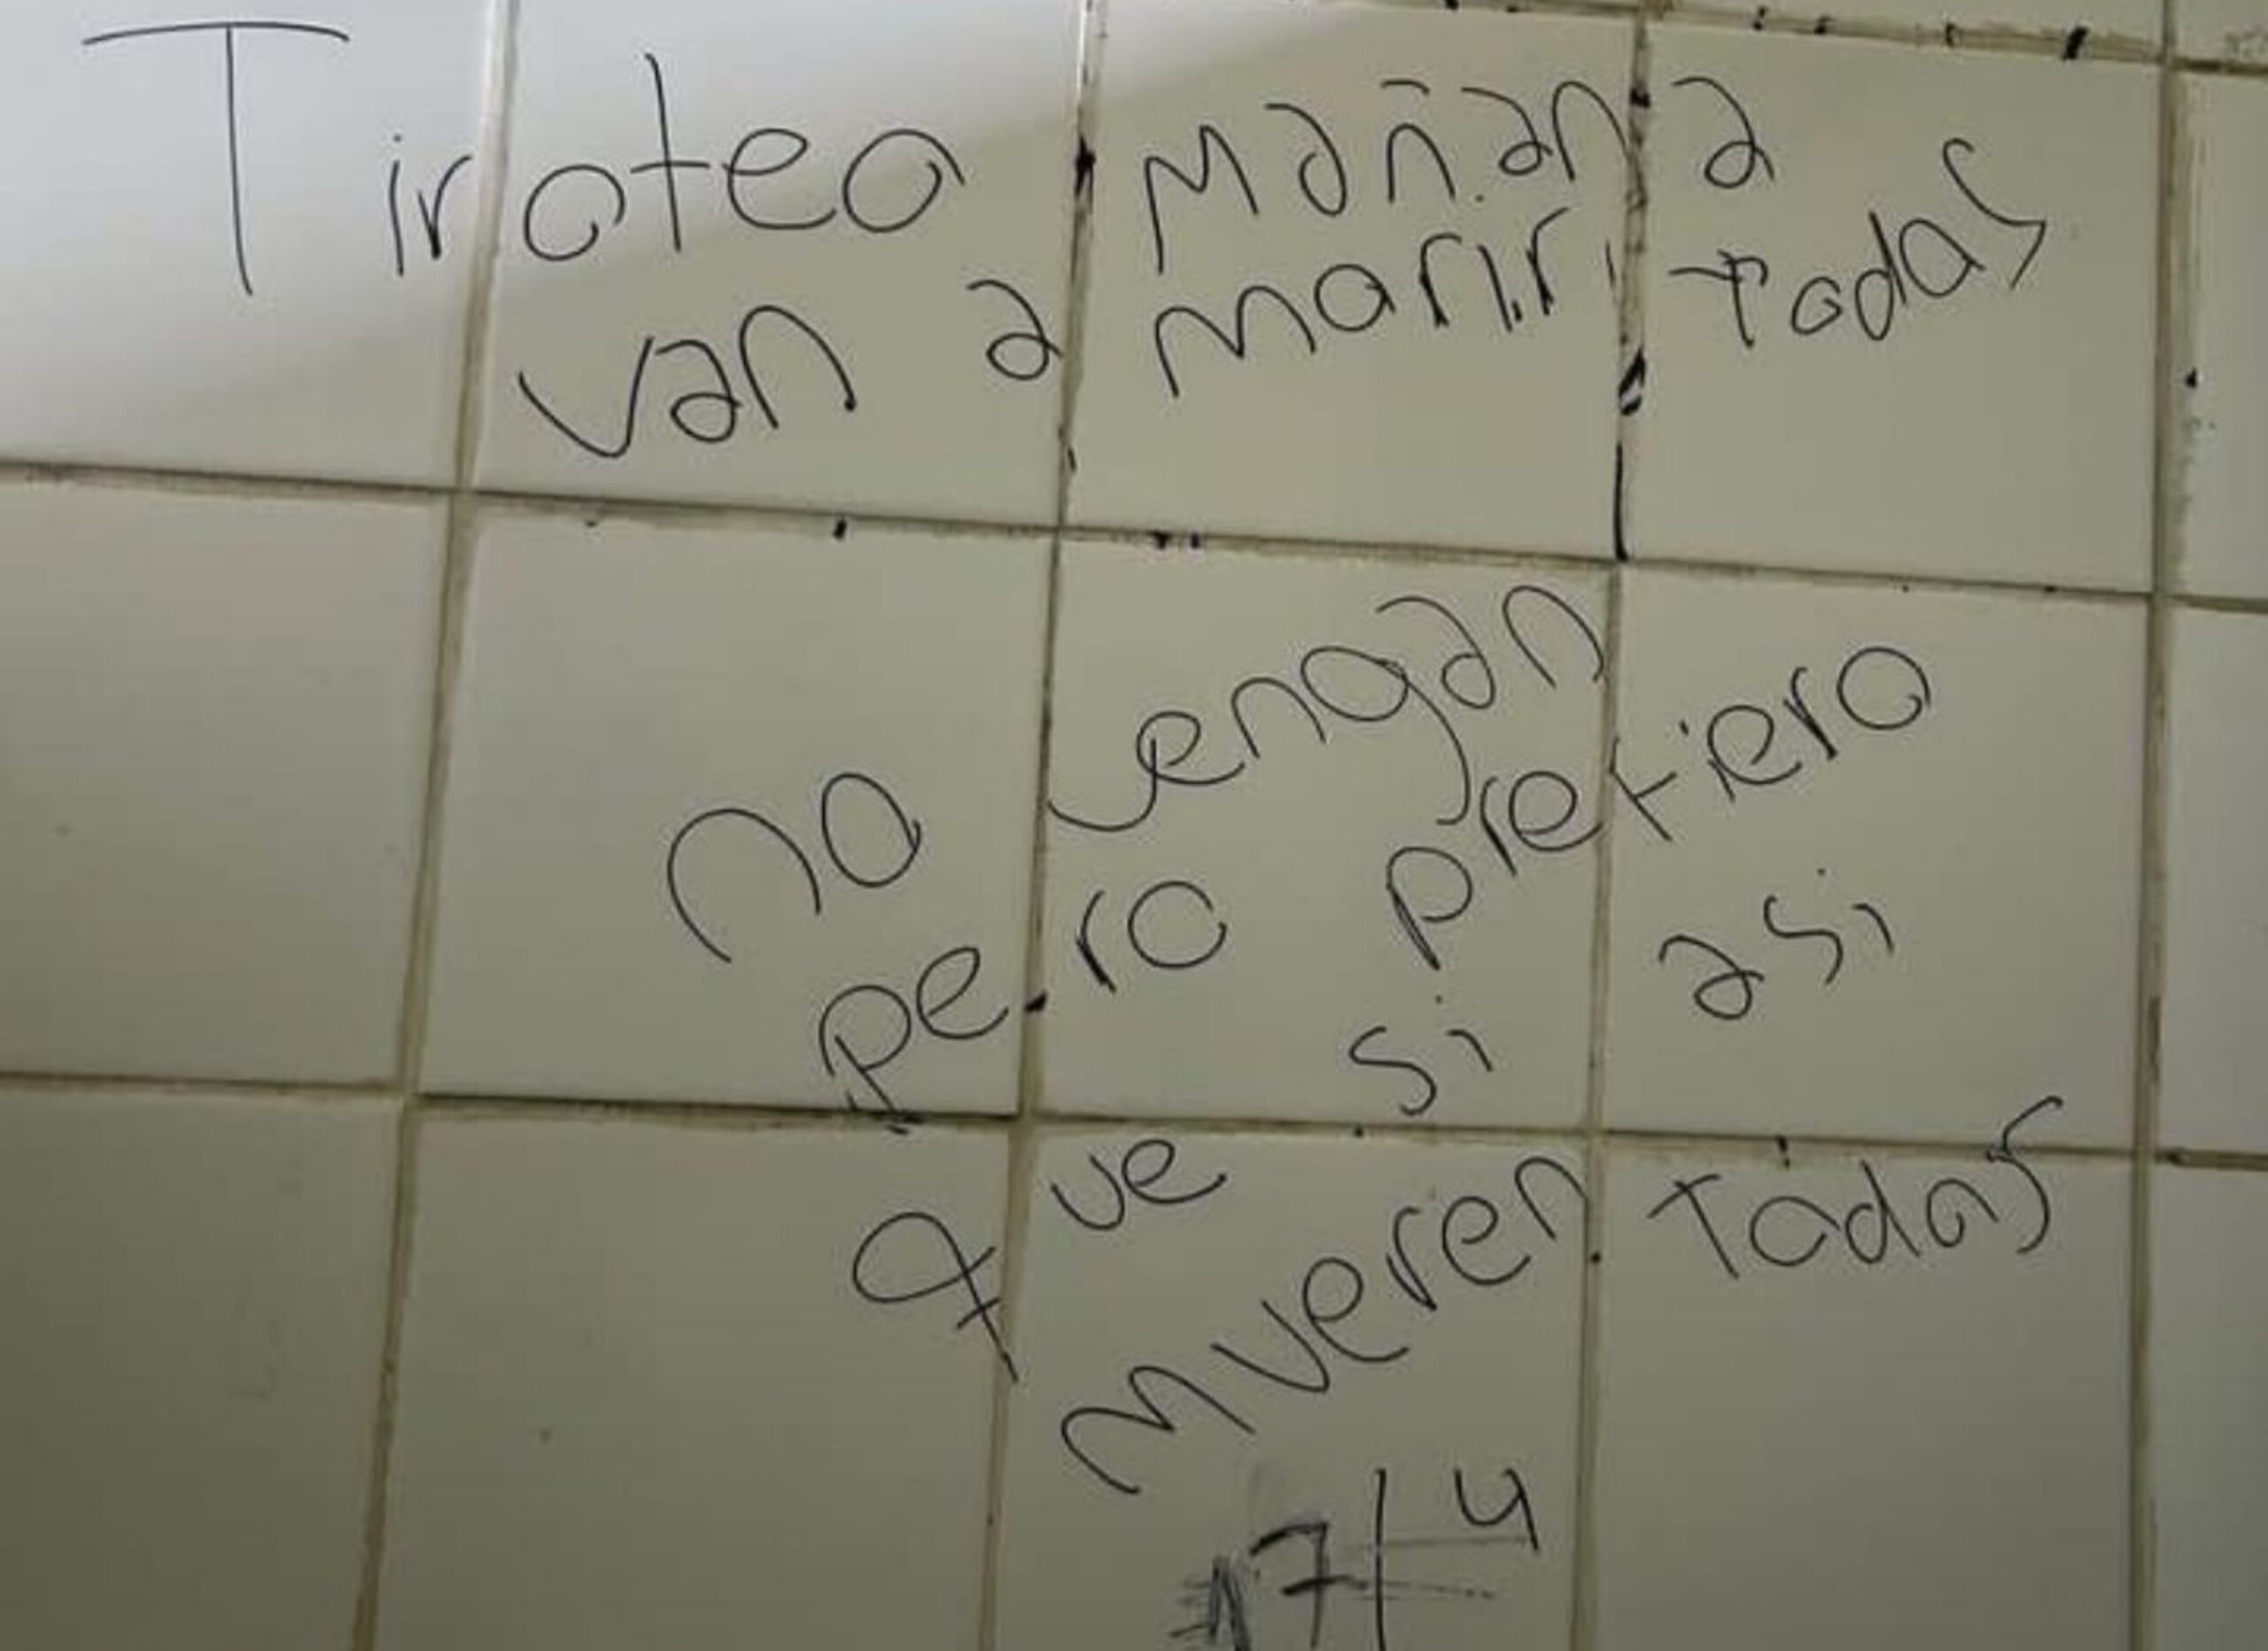 Tiroteo mañana
van a morir todas
no vengan
pero si prefiero
que si asi
mueren todas
17/4